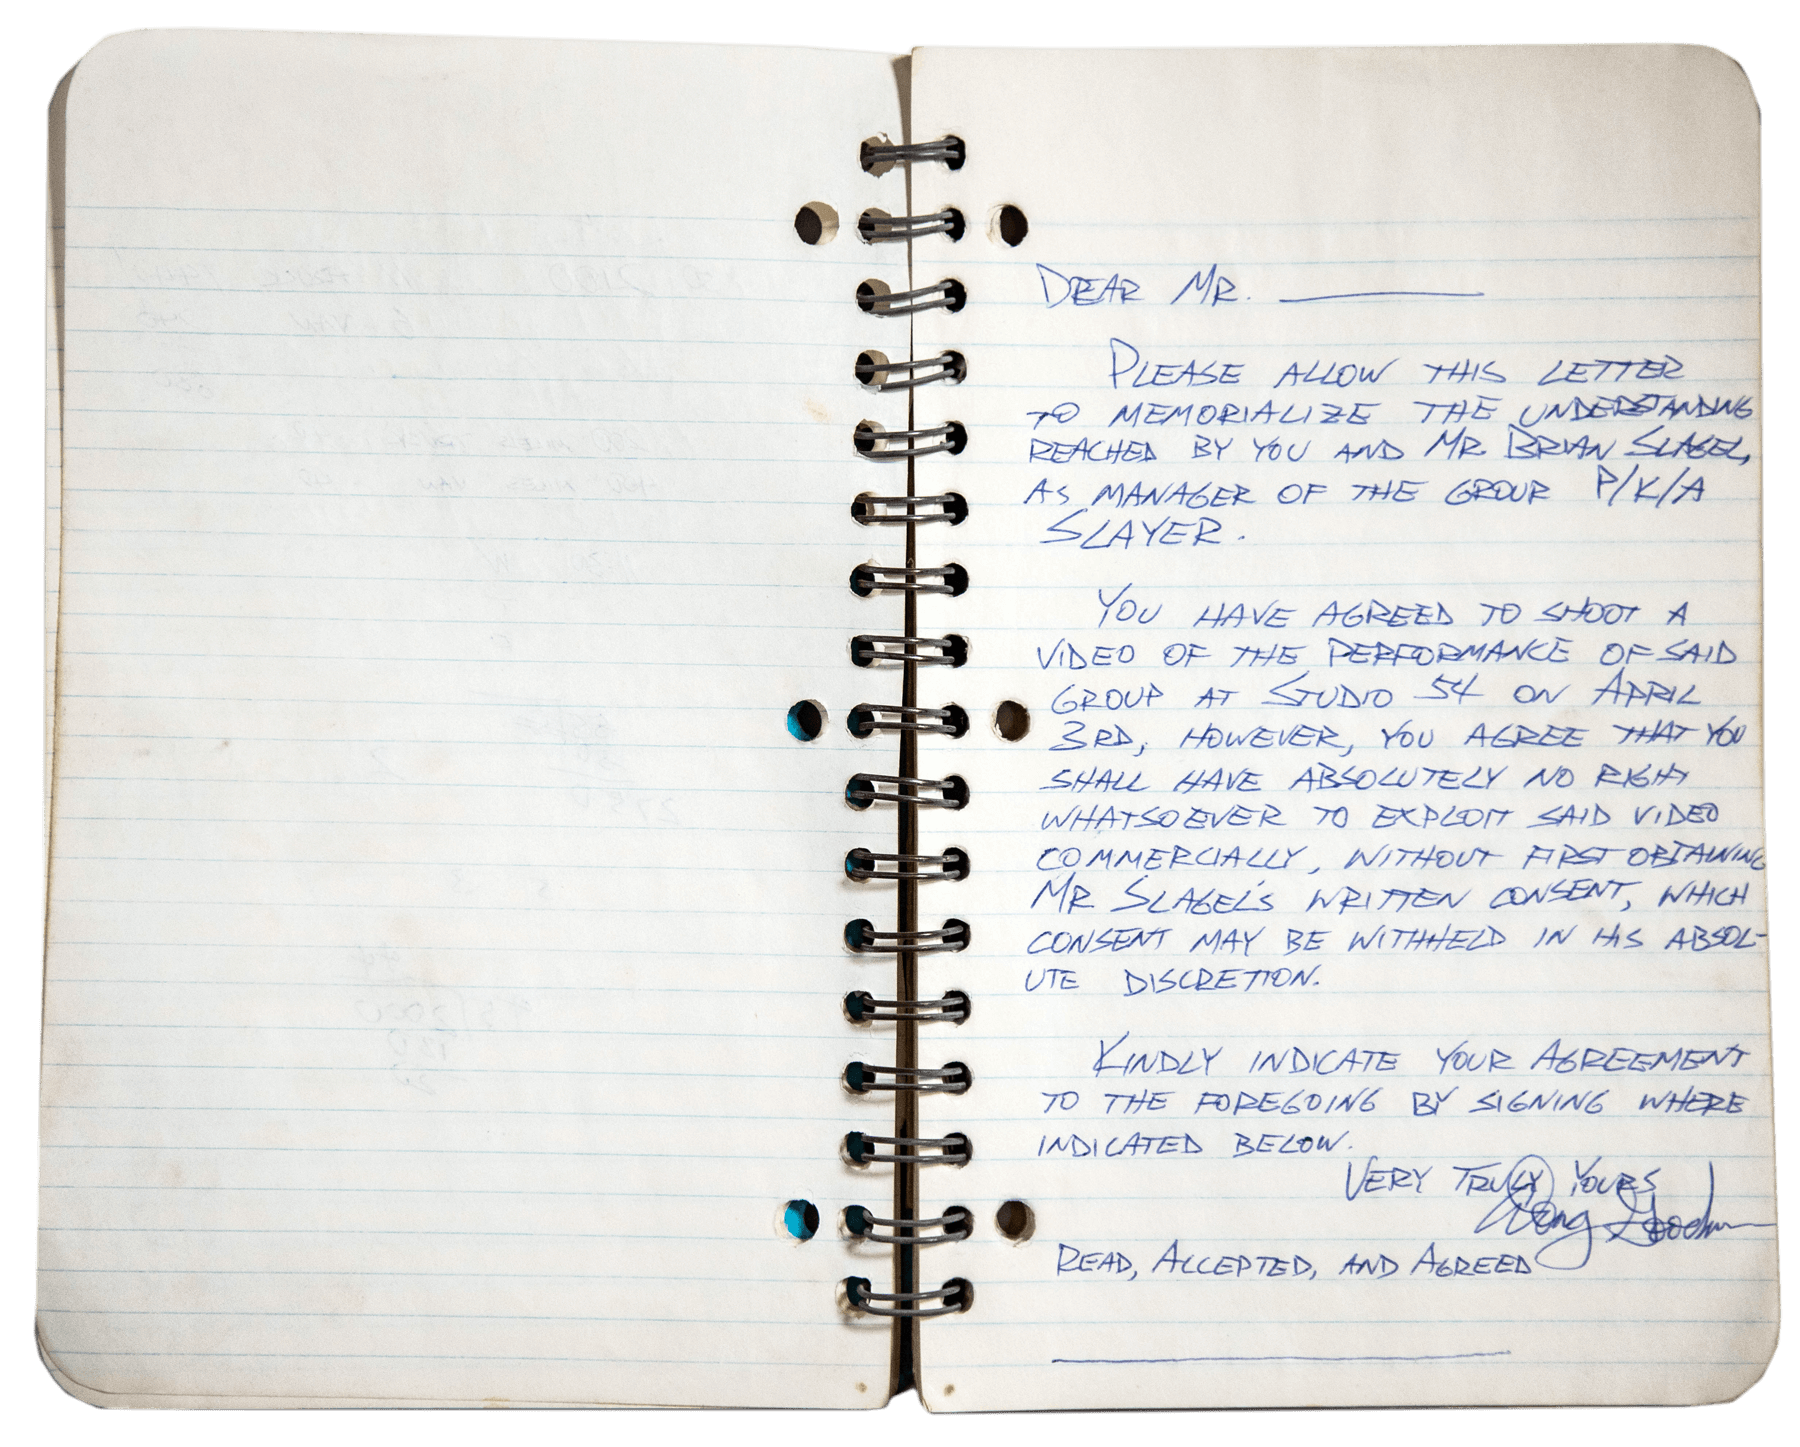 Dear Mr. ________
Please allow this letter
to memorialize the understanding
reached by you and Mr. Brian Slagel,
as manager of the group p/k/a
Slayer.
You have agreed to shoot a
video of the performance of said
group at Studio 54 on April
3rd, however, you agree that you
shall have absolutely no right
whatsoever to exploit said video
commercially, without first obtaining
Mr Slagel's written consent, which
consent may be withheld in his absol-
ute discretion.
Kindly indicate your agreement
to the foregoing by signing where
indicated below.
Very Truly Yours
Doug Goodman
Read, Accepted, and Agreed